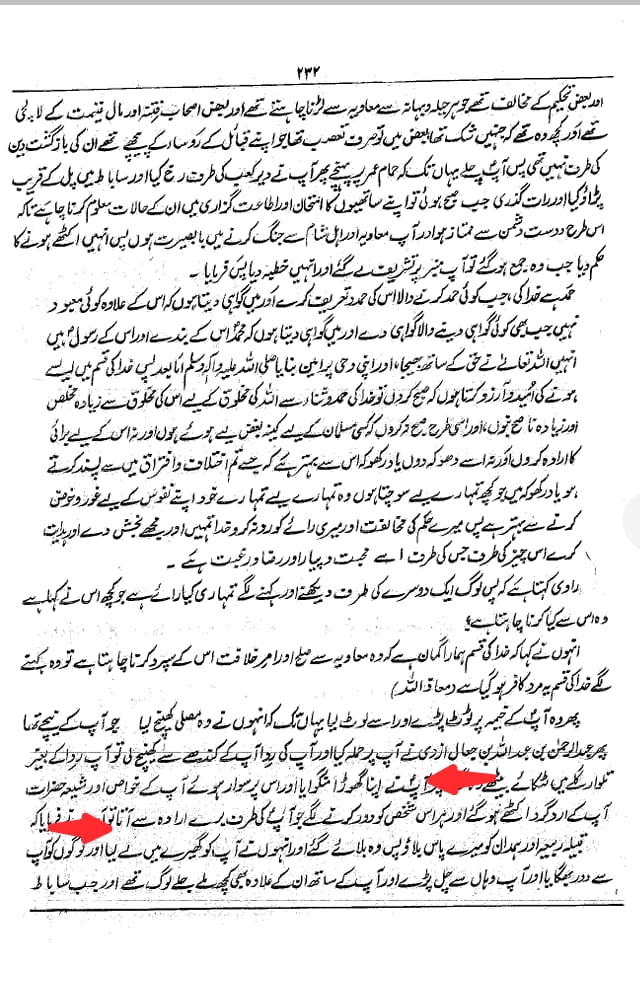 ۲۳۲
اور بعض تحکیم کے مخالف تھے جو ہر حیلہ و بہانہ سے معاویہ سے لڑنا چاہتے تھے اور بعض اصحاب فتنہ اور مال غنیمت کے لالچی
تھے اور کچھ وہ تھے کہ جنہیں شک تھا بعض میں تو صرف تعصب تھا جو اپنے قبائل کے رؤساء کے پیچھے تھے ان کی بازگشت دین
کی طرف نہیں تھی پس آپ چلے یہاں تک کہ حمام عمر پر پہنچے پھر آپ نے دیر کعب کی طرف رخ کیا اور ساباط میں پل کے قریب
پڑاؤ کیا اور رات گذری جب صبح ہوئی تو اپنے ساتھیوں کا امتحان اور اطاعت گزاری میں ان کے حالات معلوم کرنا چاہے تاکہ
اس طرح دوست دشمن سے ممتاز ہو اور آپ معاویہ اور اہل شام سے جنگ کرنے میں بابصیرت ہوں پس انہیں اکٹھے ہونے کا
حکم دیا جب وہ جمع ہو گئے تو آپ منبر پر تشریف لے گئے اور انہیں خطبہ دیا پس فرمایا ۔
حمد ہے خدا کی، جب کوئی حمد کرنے والا اس کی حمد و تعریف کرے اور میں گواہی دیتا ہوں کہ اس کے علاوہ کوئی معبود
نہیں جب بھی کوئی گواہی دینے والا گواہی دے اور میں گواہی دیتا ہوں کہ محمدؐ اس کے بندے اور اس کے رسول ہیں
انہیں اللہ تعالےٰ نے حق کے ساتھ بھیجا، اور اپنی وحی پر امین بنایا صلی اللہ علیہ وآلہ وسلم اما بعد پس خدا کی قسم میں ایسے
ہونے کی امید و آرزو کرتا ہوں کہ صبح کروں تو خدا کی حمد و ثناء سے اللہ کی مخلوق کے لیے اس کی مخلوق سے زیادہ مخلص
اور زیادہ ناصح ہوں، اور اسی طرح صبح نہ کروں کہ کسی مسلمان کے لیے کینہ بغض لیے ہوئے ہوں اور نہ اس کے لیے برائی
کا ارادہ کروں اور نہ اسے دھوکہ دوں یاد رکھو کہ اس سے بہتر ہے کہ جسے تم اختلاف و افتراق میں سے پسند کرتے
ہو یاد رکھو کہ میں جو کچھ تمہارے لیے سوچتا ہوں وہ تمہارے لیے تمہارے خود اپنے نفوس کے لیے غور و خوض
کرنے سے بہتر ہے پس میرے حکم کی مخالفت اور میری رائے کو رد نہ کرو خدا تمہیں اور مجھے بخش دے اور ہدایت
کرے اس چیز کی طرف جس کی طرف اسے محبت و پیار اور رضا و رغبت ہے ۔
راوی کہتا ہے کہ پس لوگ ایک دوسرے کی طرف دیکھتے اور کہنے لگے تمہاری کیا رائے ہے جو کچھ اس نے کہا ہے
وہ اس سے کیا کرنا چاہتا ہے؟
انہوں نے کہا کہ خدا کی قسم ہمارا گمان ہے کہ وہ معاویہ سے صلح اور امر خلافت اس کے سپرد کرنا چاہتا ہے تو وہ کہنے
لگے خدا کی قسم یہ مرد کافر ہو گیا ہے (معاذ اللہ)
پھر وہ آپ کے خیمہ پر ٹوٹ پڑے اور اسے لوٹ لیا یہاں تک کہ انہوں نے وہ مصلی کھینچ لیا جو آپ کے نیچے تھا
پھر عبدالرحمٰن بن عبداللہ بن جعال ازدی نے آپ پر حملہ کیا اور آپ کی ردا آپ کے کندھے سے کھینچ لی تو آپ ردا کے بغیر
تلوار گلے میں لٹکائے بیٹھے آپ نے اپنا گھوڑا منگوایا اور اس پر سوار ہوئے آپ کے خواص اور شیعہ حضرات
آپ کے اردگرد اکٹھے ہو گئے اور ہر اس شخص کو دور کرنے لگے جو آپ کی طرف برے ارادہ سے آتا فرمایا کہ
قبیلہ ربیعہ اور ہمدان کو میرے پاس بلاؤ پس وہ بلائے گئے اور انہوں نے آپ کو گھیرے میں لے لیا اور لوگوں کو آپ
سے دور بھگایا اور آپ وہاں سے چل پڑے اور آپ کے ساتھ ان کے علاوہ بھی کچھ ملے جلے لوگ تھے اور جب ساباط